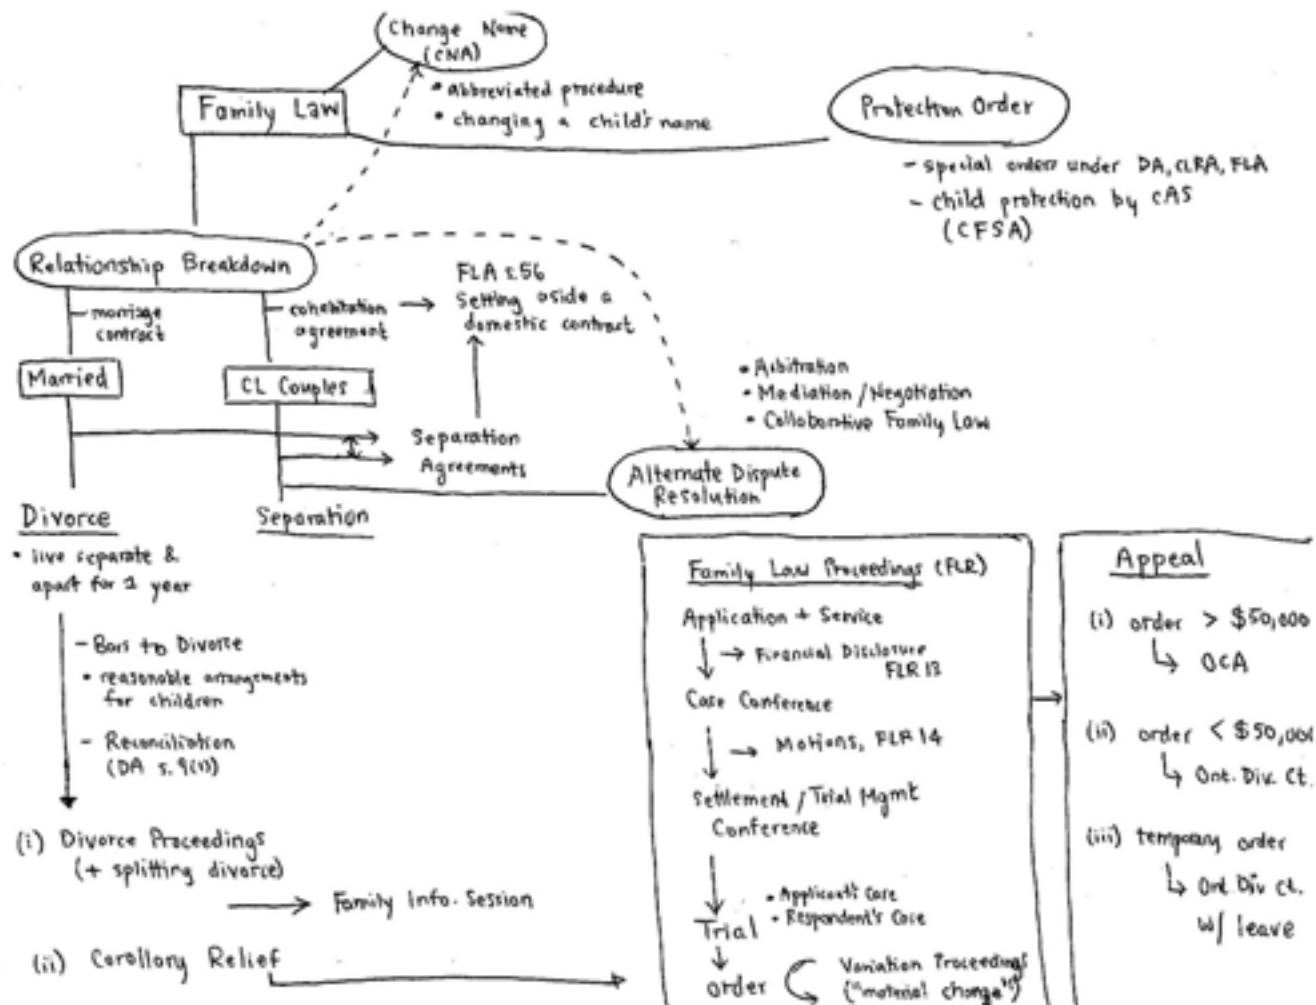 Change Name
(CNA)
• Abbreviated procedure
• changing a child's name
Family Law
Protection Order
- special orders under DA, CLRA, FLA
- child protection by CAS
(CFSA)
Relationship Breakdown
- marriage
contract
- cohabitation
agreement
FLA s.56
Setting aside a
domestic contract
Married
CL Couples
• Arbitration
• Mediation / Negotiation
• Collaborative Family Law
Separation
Agreements
Alternate Dispute
Resolution
Divorce
• live separate &
apart for 1 year
Separation
- Bars to Divorce
• reasonable arrangements
for children
- Reconciliation
(DA s. 9(1))
(i) Divorce Proceedings
(+ splitting divorce)
Family Info. Session
(ii) Corollory Relief
Family Law Proceedings (FLR)
Application + Service
Financial Disclosure
FLR 13
Case Conference
Motions, FLR 14
Settlement / Trial Mgmt
Conference
• Applicant's Case
• Respondent's Case
Trial
order
Variation Proceedings
("material change")
Appeal
(i) order > $50,000
OCA
(ii) order < $50,000
Ont. Div. Ct.
(iii) temporary order
Ont. Div Ct.
w/ leave